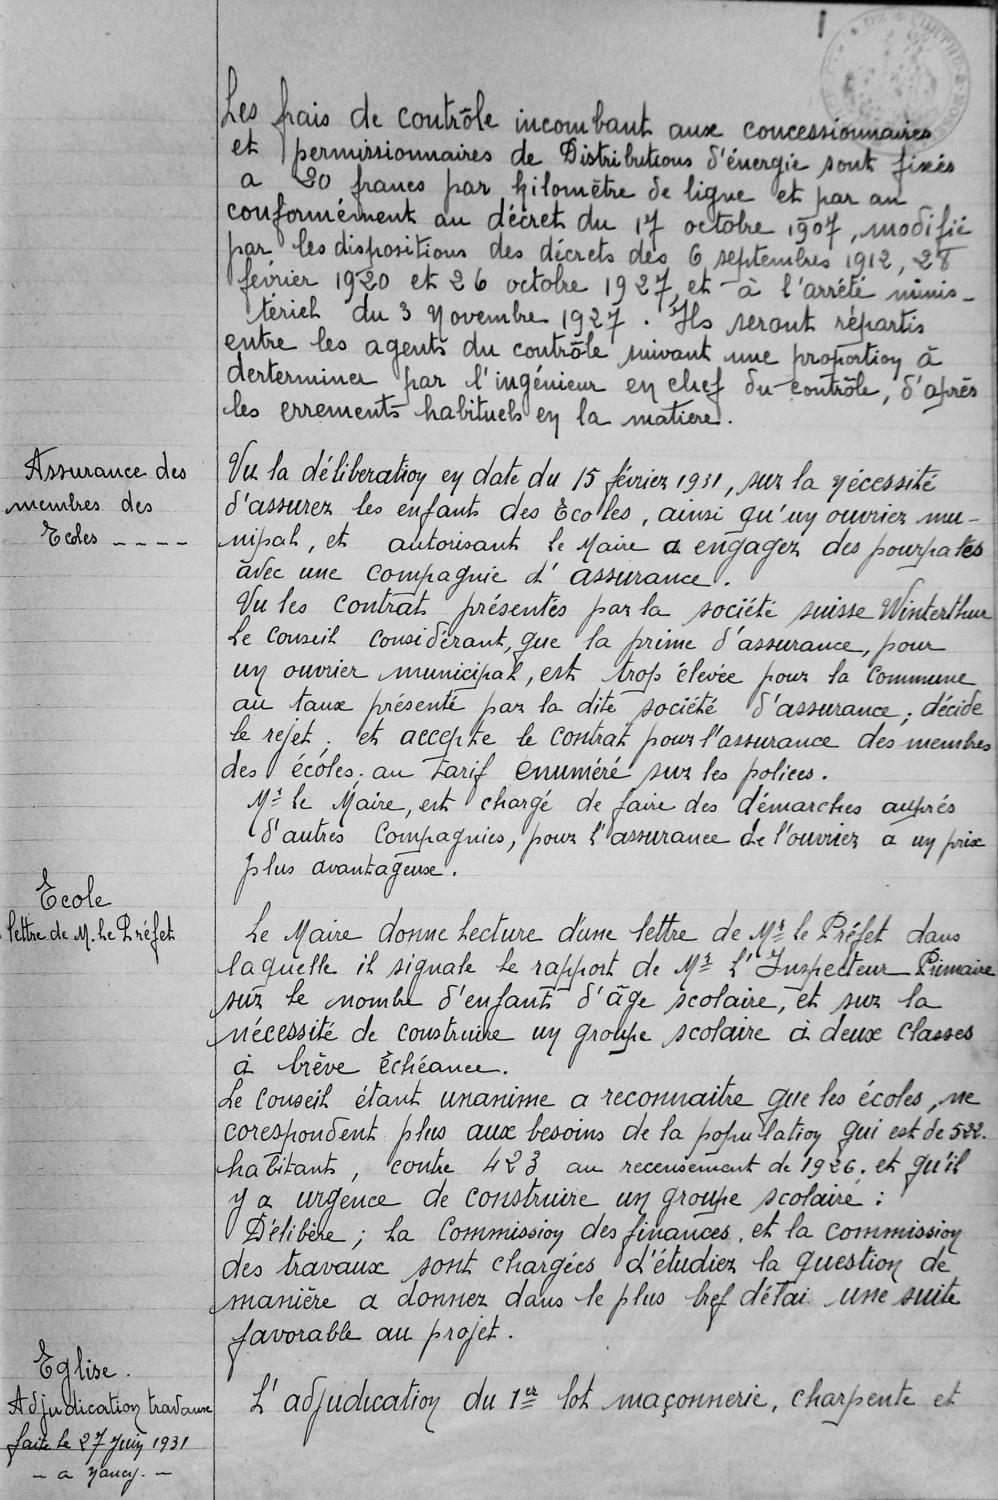 Les frais de contrôle incombant aux concessionnaires
et permissionnaires de Distributions d'énergie sont fixés
a 20 francs par kilomètre de ligne et par an
conformément au décret du 17 octobre 1907, modifié
par les dispositions des décrets des 6 septembres 1912, 28
février 1920 et 26 octobre 1927, et à l'arrêté minis-
tériel du 3 Novembre 1927. Ils seront répartis
entre les agents du contrôle suivant une proportion à
derterminer par l'ingénieur en chef du contrôle, d'après
les errements habituels en la matiere.
Assurance des
membres des
Ecoles - - - -
Vu la déliberation en date du 15 février 1931, sur la nécessité
d'assurer les enfants des Ecoles, ainsi qu'un ouvrier mu-
nipal, et autorisant le Maire a engager des pourpales
avec une compagnie d'assurance.
Vu les contrat présentés par la société suisse Winterthur
Le Conseil considérant, que la prime d'assurance, pour
un ouvrier municipal, est trop élevée pour la commune
au taux présenté par la dite société d'assurance; décide
le rejet; et accepte le contrat pour l'assurance des membres
des écoles; au tarif énuméré sur les polices.
Mr le Maire, est chargé de faire des démarches auprés
d'autres Compagnies, pour l'assurance de l'ouvrier a un prix
plus avantageux.
Ecole
lettre de M. Le Préfet
Le Maire donne Lecture d'une lettre de Mr le Préfet dans
laquelle il signale le rapport de Mr l'Inspecteur Primaire
sur le nombre d'enfants d'âge scolaire, et sur la
nécessité de construire un groupe scolaire à deux classes
à brève échéance.
Le Conseil étant unanime a reconnaitre que les écoles, ne
corespondent plus aux besoins de la population qui est de 522.
habitants, contre 423 au recensement de 1926. et qu'il
y a urgence de construire un groupe scolaire:
Délibère; La Commission des finances, et la commission
des travaux sont chargées d'étudier la question de
manière a donner dans le plus bref délai une suite
favorable au projet.
Eglise.
Adjudication travaux
faite le 27 Juin 1931
- a Nancy. -
L'adjudication du 1er lot maçonnerie, charpente et